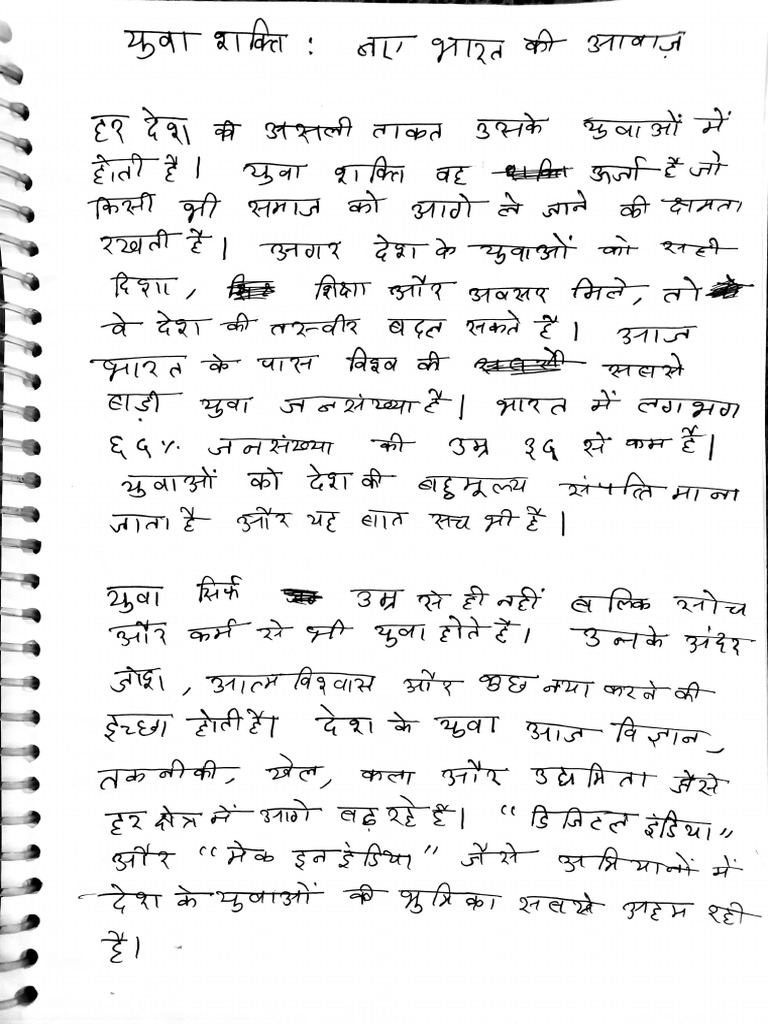 युवा शक्ति : नए भारत की आवाज़
हर देश की असली ताकत उसके युवाओं में
होती है। युवा शक्ति वह ऊर्जा है जो
किसी भी समाज को आगे ले जाने की क्षमता
रखती है। अगर देश के युवाओं को सही
दिशा, शिक्षा और अवसर मिले, तो
वे देश की तस्वीर बदल सकते है। आज
भारत के पास विश्व की सबसे
बड़ी युवा जनसंख्या है। भारत में लगभग
६५% जनसंख्या की उम्र ३५ से कम है।
युवाओं को देश की बहुमूल्य संपत्ति माना
जाता है और यह बात सच भी है।
युवा सिर्फ उम्र से ही नहीं बल्कि सोच
और कर्म से भी युवा होते है। उनके अंदर
जोश, आत्मविश्वास और कुछ नया करने की
इच्छा होती है। देश के युवा आज विज्ञान,
तकनीकी, खेल, कला और उद्यमिता जैसे
हर क्षेत्र में आगे बढ़ रहे है। “डिजिटल इंडिया”
और “मेक इन इंडिया” जैसे अभियानों में
देश के युवाओं की भुमिका सबसे अहम रही
है।